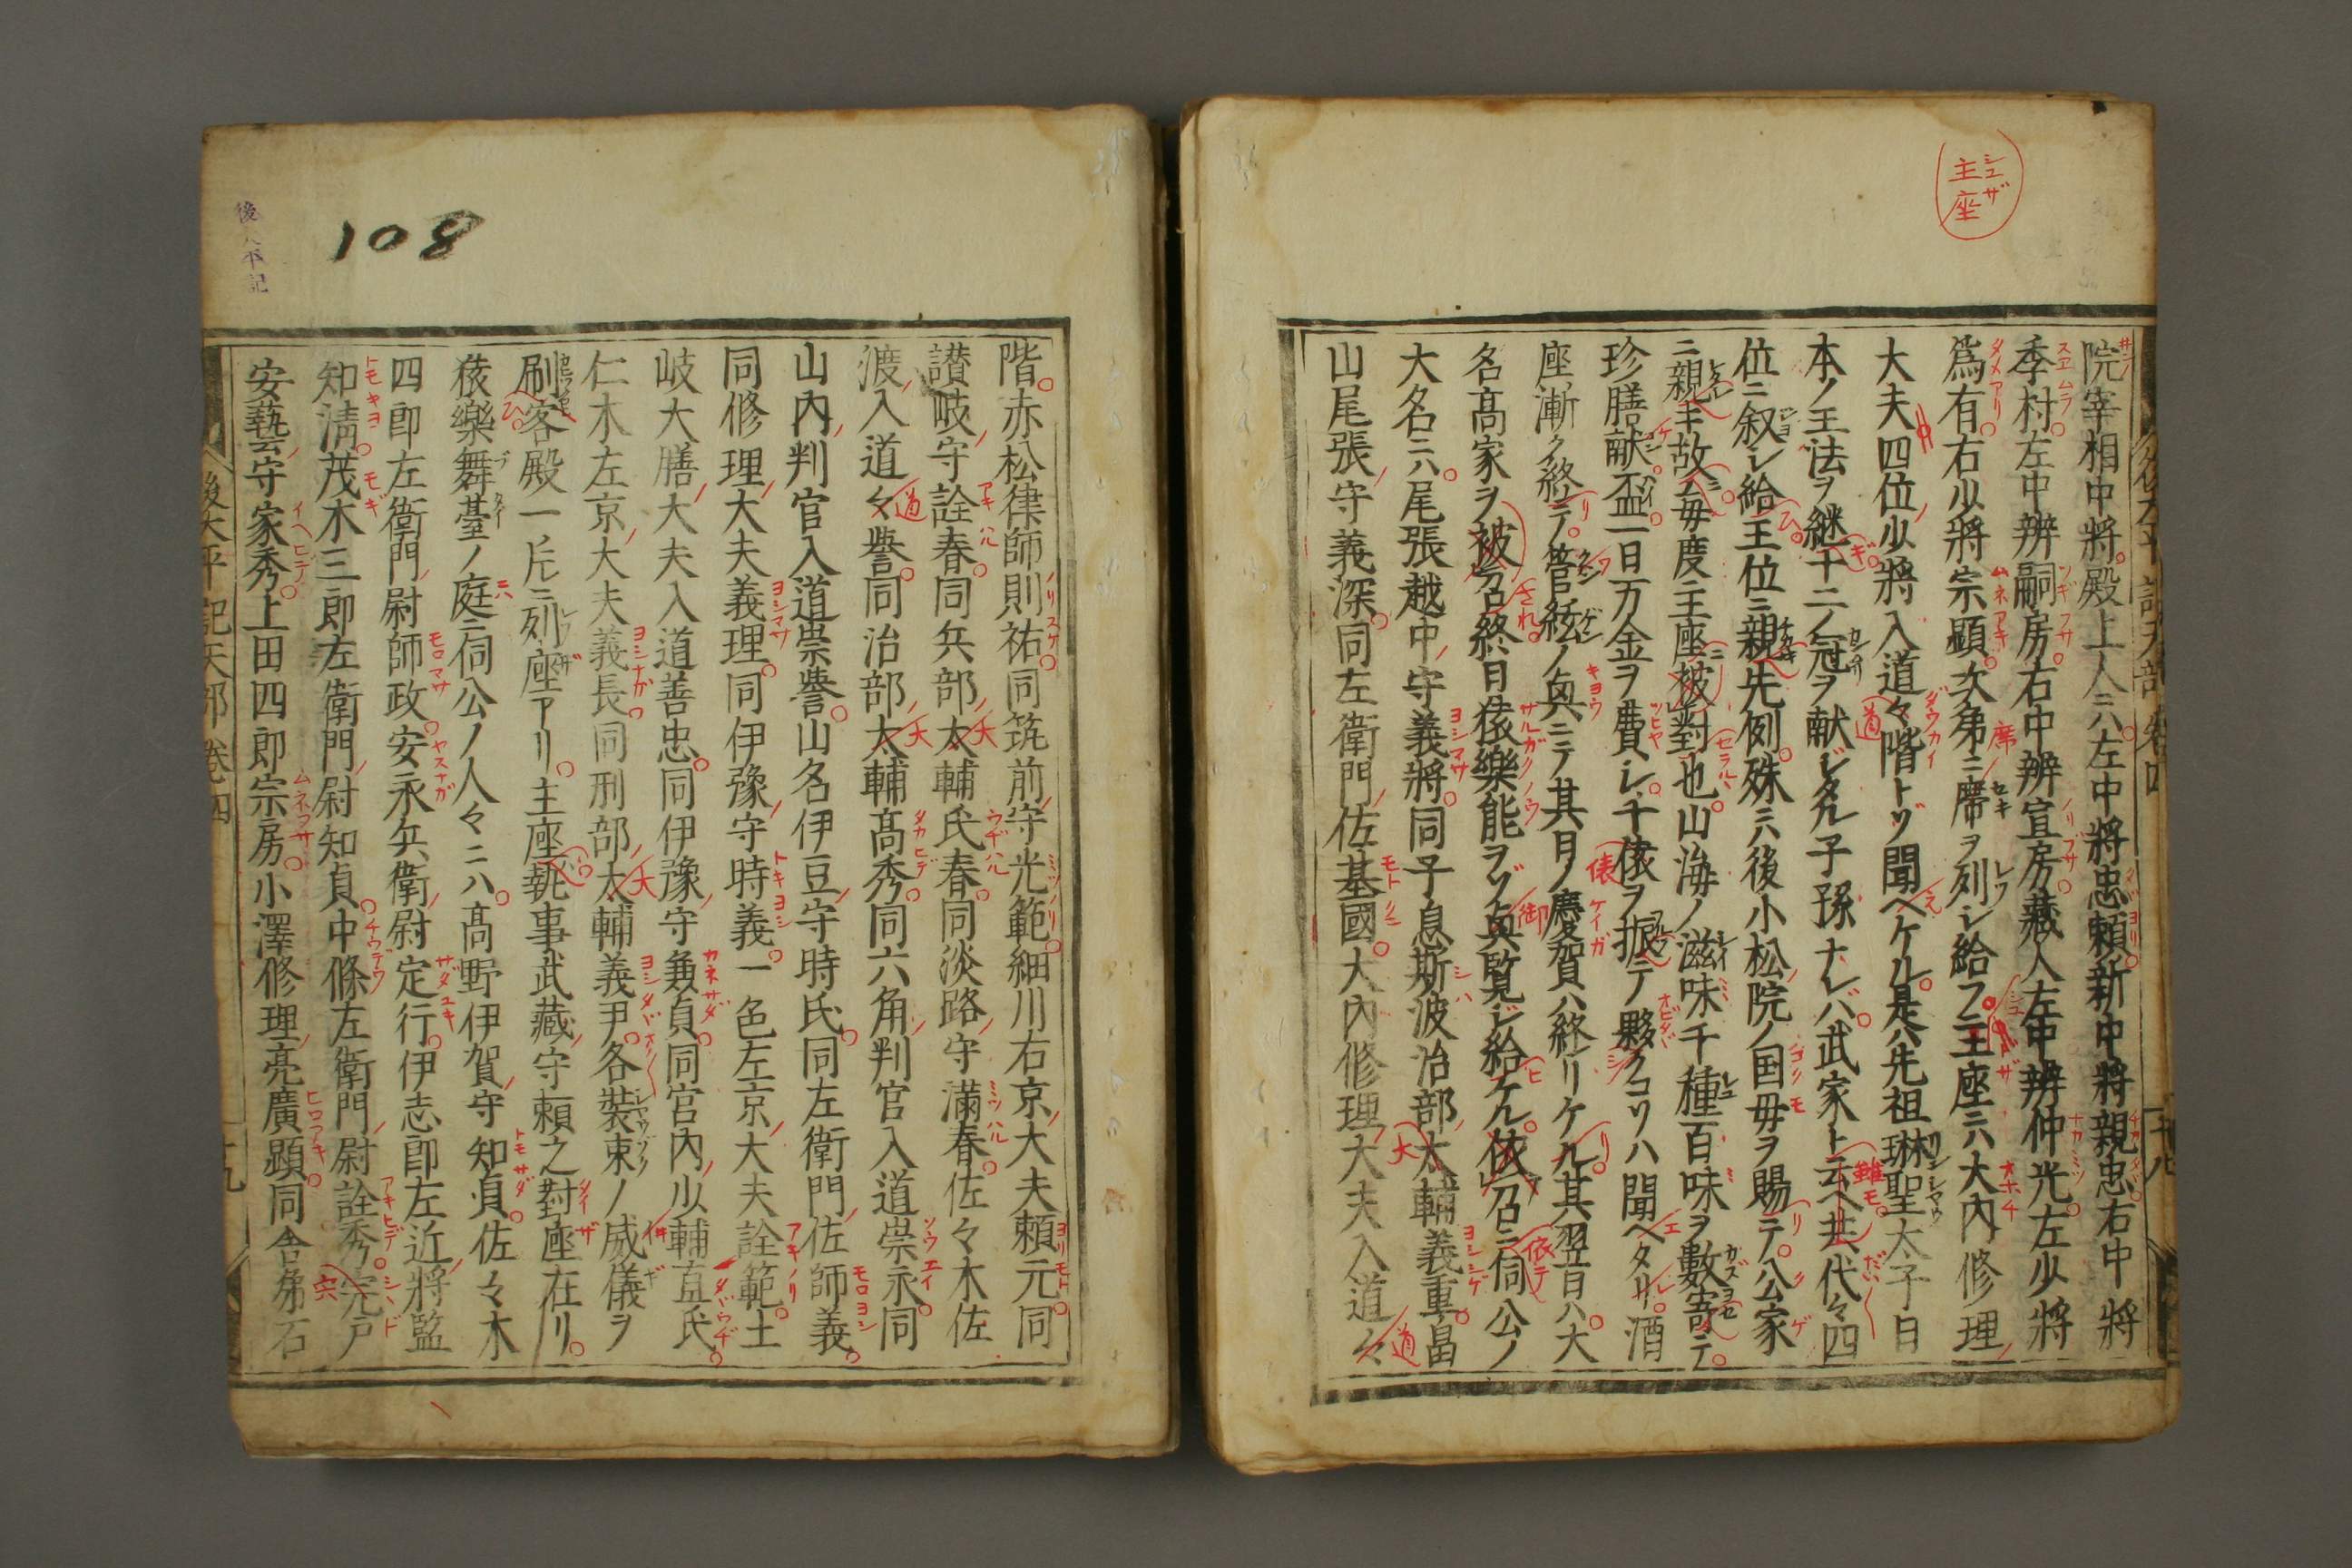 主座
シユザ
院宰相中將殿上人ニハ左中將忠頼新中將親忠右中將
季村左中辨嗣房右中辨宣房藏人左中辨仲光左少將
爲有右少將宗顯次第ニ席ヲ列シ給フ主座ニハ大内修理
大夫四位少將入道々階トゾ聞ヘケル是ハ先祖琳聖太子日
本ノ王法ヲ継十二ノ冠ヲ献シタル子孫ナレバ武家ト云ヘ共代々四
位ニ叙シ給王位ニ親先例殊ニハ後小松院ノ国母ヲ賜テ公家
ニ親キ故毎度主座被對也山海ノ滋味千種百味ヲ數寄テ
珍膳献盃一日万金ヲ費シ千俵ヲ振テ夥クコソハ聞ヘタリ酒
座漸ク終テ管絃ノ興ニテ其日ノ慶賀ハ終リケル其翌日ハ大
名高家ヲ被召終日猿樂能ヲゾ興覧シ給ケル依召ニ伺公ノ
大名ニハ尾張越中守義將同子息斯波治部太輔義重畠
山尾張守義深同左衛門佐基國大内修理大夫入道々
後太平記天部卷四
十八
階赤松律師則祐同筑前守光範細川右京大夫頼元同
讃岐守詮春同兵部太輔氏春同淡路守滿春佐々木佐
渡入道々誉同治部太輔高秀同六角判官入道崇永同
山内判官入道崇誉山名伊豆守時氏同左衛門佐師義
同修理大夫義理同伊豫守時義一色左京大夫詮範土
岐大膳大夫入道善忠同伊豫守兼貞同宮内少輔直氏
仁木左京大夫義長同刑部太輔義尹各裝束ノ威儀ヲ
刷客殿一片ニ列座アリ主座執事武藏守頼之對座在リ
猿樂舞臺ノ庭ニ伺公ノ人々ニハ高野伊賀守知貞佐々木
四郎左衛門尉師政安永兵衛尉定行伊志郎左近將監
知淸茂木三郎左衛門尉知貞中條左衛門尉詮秀完戸
安藝守家秀上田四郎宗房小澤修理亮廣顯同舎弟石
後太平記天部卷四
十九
108